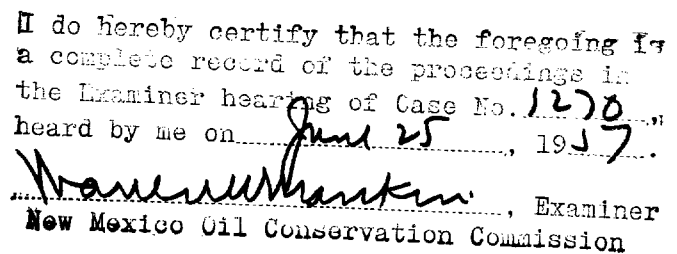 I do hereby certify that the foregoing is
a complete record of the proceedings in
the Examiner hearing of Case No. 1270,
heard by me on June 25, 1957.
, Examiner
New Mexico Oil Conservation Commission